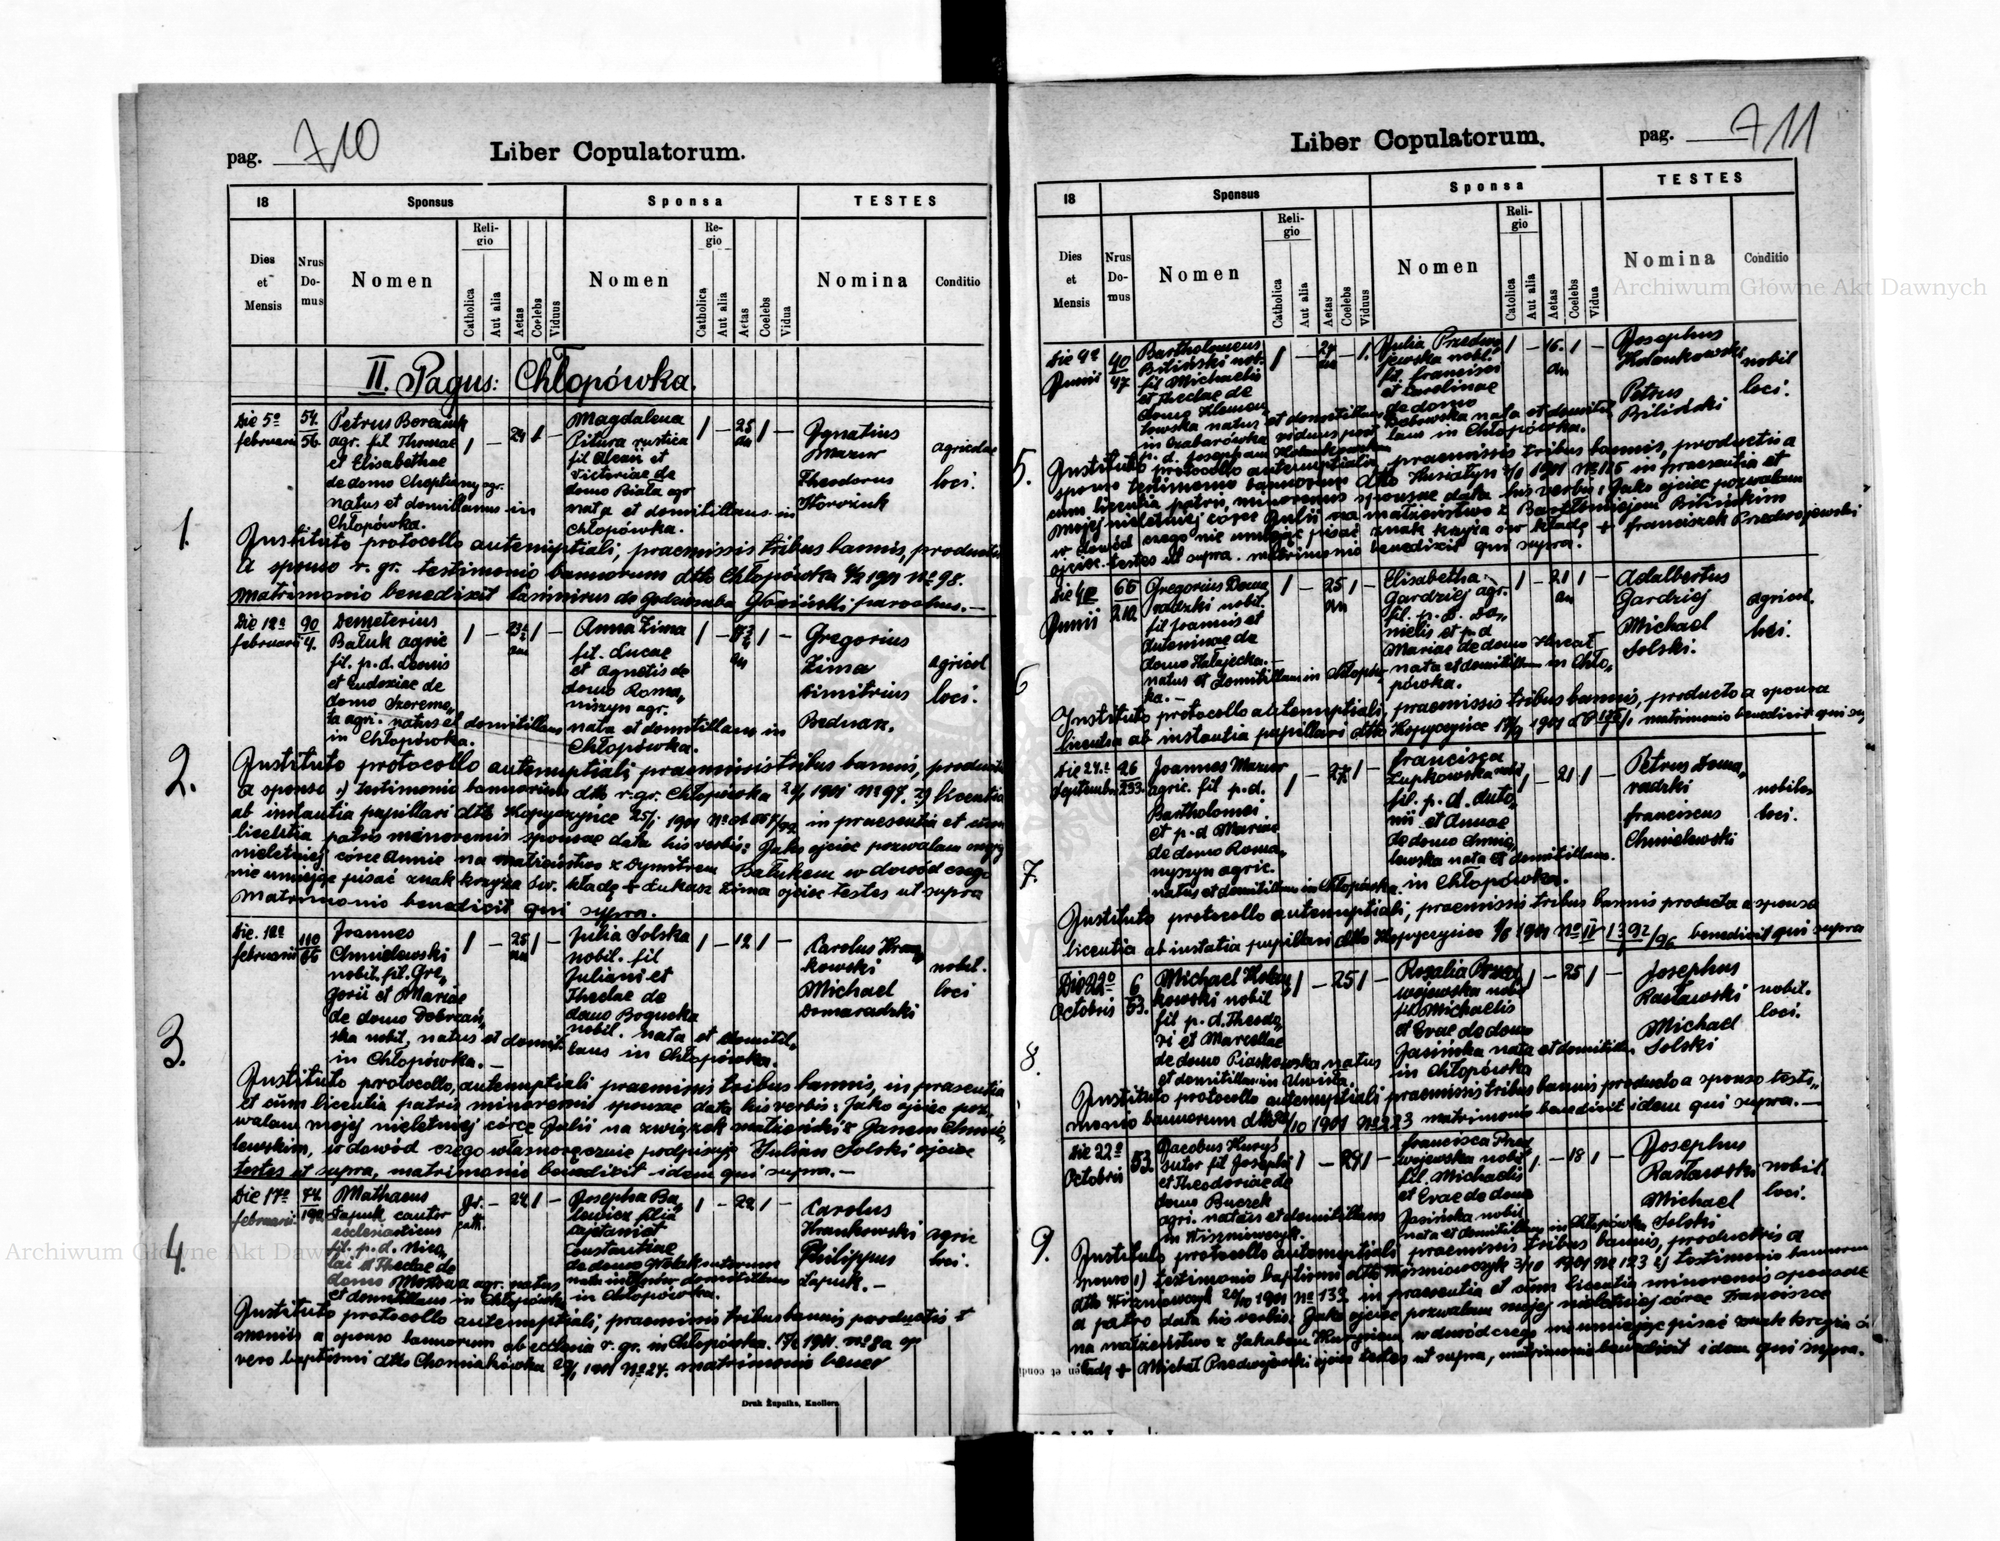 pag. 710
Liber Copulatorum.
18
Sponsus
Sponsa
TESTES
Dies et Mensis
Nrus Domus
Nomen
Religio
Catholica
Aut alia
Aetas
Coelebs
Viduus
Nomen
Re-gio
Catholica
Aut alia
Aetas
Coelebs
Vidua
Nomina
Conditio
II. Pagus: Chłopówka.
1.
Die 5º februarii
54. 56.
Petrus
agr. fil Thomae
et Elisabethae
de domo
natus et domitillans in
Chłopówka.
24
Magdalena
Pitura rustica
fil et
Victoriae de
domo Biała agr
nata et domitillans in
Chłopówka.
25 an
Ignatius
Mazur
Theodorus
agricolae
loci.
Instituto protocollo antenuptiali, praemissis tribus bannis, producto
a sponso r. gr. testimonio bannorum dtto Chłopówka 1901 Nº 98.
Matrimonio benedixit Casimirus de Godziemba parochus.—
2.
Die 12º februarii
90 4.
Demeterius
Baluk agric
fil. p. d.
et Eudoxiae de
domo Szereme-
ta agri. natus et domitillans
in Chłopówka.
Anna Zima
fil. Lucae
et Agnetis de
domo Roma-
niszyn agr.
nata et domitillans in
Chłopówka.
Gregorius
Zima
Dimitrius
Bednarz.
agricol
loci.
Instituto protocollo antenuptiali praemissis tribus bannis,
a sponso 1) testimonio bannorum dtto r. gr. Chłopówka 1901 Nº 97. 2) licentia
ab instantia pupillari dtto Kopyczyńce 25/1 1901 in praesentia et
licentia patris minorennis sponsae data his verbis: Jako ojciec pozwalam mojej
nieletniej córce Annie na małżeństwo z Dymitrem Balukem w dowód czego
nie umiejąc pisać znak krzyża św. kładę + Łukasz Zima ojciec testes ut supra
Matrimonio benedixit qui supra.
3.
Die. 12º februarii
110 66
Joannes
Chmielewski
nobil. fil. Gre-
gorii et Mariae
de domo
ska nobil, natus et domit.
in Chłopówka.—
25 an
Julia Solska
nobil. fil
Juliani et
Theclae de
domo Bogucka
nobil. nata et domitil-
lans in Chłopówka.
Carolus Hran-
kowski
Michael
Domaradzki
nobil.
loci
Instituto protocollo, antenuptiali praemissis tribus bannis, in praesentia
et cum licentia patris minorennis sponsae data his verbis: Jako ojciec poz-
walam mojej nieletniej córce Julii na związek małżeński z Janem Chmie-
lewskim, w dowód czego własnoręcznie podpisuję Julian Solski ojciec
testes ut supra, matrimonio benedixit idem qui supra.—
4.
Die 17º februarii
74. 190
Mathaeus
Łapuk cantor
ecclesiasticus
fil. p. d. Nico-
lai et Theclae de
domo agr. natus
et domitillans in Chłopówka
gr. cath.
24
Josepha Ba-
lewicz filia
Cajetani et
Constantiae
de domo
nata in domitillans
in Chłopówka.
22
Carolus
Hrankowski
Philippus
Łapuk.—
agric
loci.
Instituto protocollo antenuptiali; praemissis tribus bannis productis
a sponso bannorum ab ecclesia r. gr. in Chłopówka. 1901. Nº 8
vero baptismi dtto Chomiakówka 1901 Nº 24. matrimonio bened
Druk Żupnika, Knollera
Liber Copulatorum.
pag. 711
18
Sponsus
Sponsa
TESTES
Dies et Mensis
Nrus Domus
Nomen
Religio
Catholica
Aut alia
Aetas
Coelebs
Viduus
Nomen
Religio
Catholica
Aut alia
Aetas
Coelebs
Vidua
Nomina
Conditio
5.
Die 9ª Junii
40 47
Bartholomeus
Biliński nob.
fil Michaelis
et Theclae de
domo Klemen-
towska natus et domitillans
in Czabarówka viduus post
p. d. Josepham
Julia Przedwo-
jewska nobil.
fil. Francisci
et Carolinae
de domo
Dobowska nata et domitil-
lans in Chłopówka.
16.
Josephus
Hołonkowski
Petrus
Biliński
nobil
loci.
Instituto protocollo antenuptiali, praemissis tribus bannis, productis a
sponso testimonio bannorum dtto Husiatyn 1901 Nº 125 in praesentia et
cum licentia patris, minorennis sponsae data his verbis: Jako ojciec pozwalam
mojej nieletniej córce Julii na małżeństwo z Bartłomiejem Bilińskim
w dowód czego nie umiejąc pisać znak krzyża św kładę + Franciszek Przedwojewski
ojciec. testes ut supra. matrimonio benedixit qui supra.
6
Junii
66 210
Gregorius Doma-
radzki nobil.
fil Joannis et
Antoninae de
domo Hałajecka.—
natus et domitillans in Chłopów-
ka.—
25 an
Elisabetha
Gardziej agr.
fil. p. d. Da-
nielis et p. d
Mariae de domo
nata et domitillans in Chło-
pówka.
21 an
Adalbertus
Gardziej
Michael
Solski.
agricol.
loci.
Instituto protocollo antenuptiali, praemissis tribus bannis, producto a sponsa
licentia ab instantia pupillari dtto Kopyczyńce 1901 matrimonio benedixit qui su
7.
Die 24.ª Septembr
26 253.
Joannes Mazur
agric. fil p. d.
Bartholomei
et p. d Mariae
de domo Roma-
nyszyn agric.
natus et domitillans in Chłopówka.
Francisca
Łupkowska nobil
fil. p. d. Anto-
nii et Annae
de domo Chmie-
lewska nata et domitillans.
in Chłopówka.
21
Petrus Doma-
radzki
Franciscus
Chmielewski
nobiles
loci.
Instituto protocollo antenuptiali, praemissis tribus bannis producta a sponsa
licentia ab instantia pupillari dtto Kopyczyńce 1901 Nº IV 1392/96 benedixit qui supra
8.
Die 22º Octobris
6 53.
Michael
kowski nobil
fil p. d. Theodo-
ri et Marcellae
de domo Piaskowska natus
et domitillans in Uwisła.
25
Rosalia Przed-
wojewska nobil
fil Michaelis
et Evae de domo
Jasińska nata et domitilla.
in Chłopówka
25
Josephus
Rasławski
Michael
Solski
nobil.
loci.
Instituto protocollo antenuptiali praemissis tribus bannis producto a sponso testi-
monio bannorum dtto /10 1901 Nº 223 matrimonio benedixit idem qui supra.—
9.
Die 22º Octobris
53
Jacobus
sutor fil Josephi
et Theodoriae de
domo Buczek
agri. natus et domitillans
in Wiszniowczyk.
Francisca Przed-
wojewska nobil
fil. Michaelis
et Evae de domo
Jasińska nobil
nata et domitillans in Chłopówka
18
Josephus
Rasławski
Michael
Solski
nobil
loci.
Instituto protocollo antenuptiali praemissis tribus bannis, productis a
sponso 1) testimonio baptismi dtto Wiszniowczyk /10 1901 Nº 123 2) testimonio bannorum
dtto Wiszniowczyk /10 1901 Nº 133 in praesentia et cum licentia minorennis sponsae
a patre data his verbis: Jako ojciec pozwalam mojej nieletniej córce Franciszce
na małżeństwo z Jakubem w dowód czego nie umiejąc pisać znak krzyża ś
kładę + Michał Przedwojewski ojciec testes ut supra, matrimonio benedixit idem qui supra.
Archiwum Główne Akt Dawnych
Archiwum Główne Akt Dawnych